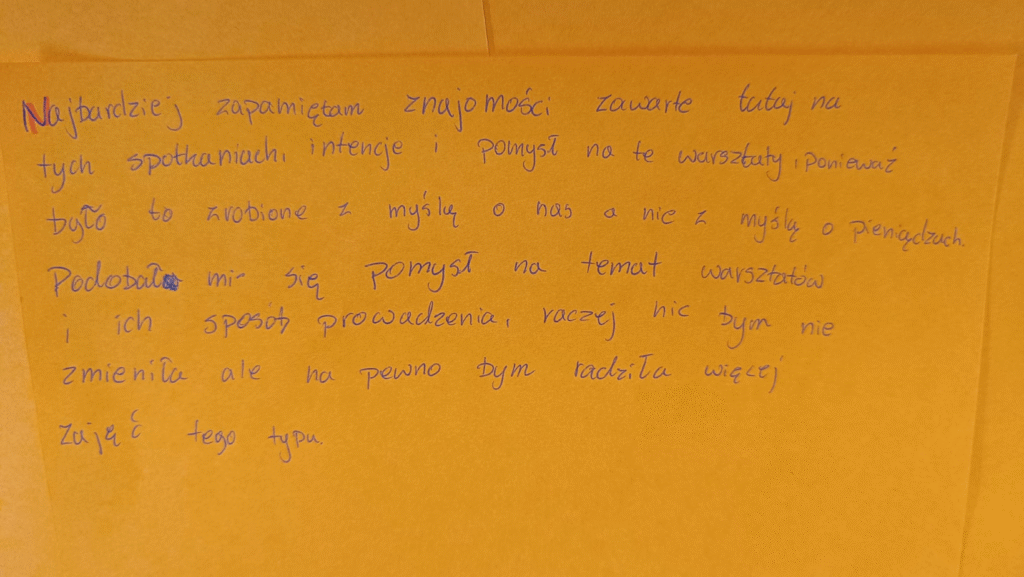 Najbardziej zapamiętam znajomości zawarte tutaj na
tych spotkaniach, intencje i pomysł na te warsztaty, ponieważ
było to zrobione z myślą o nas a nie z myślą o pieniądzach.
Podobał mi się pomysł na temat warsztatów
i ich sposób prowadzenia, raczej nic bym nie
zmieniła ale na pewno bym radziła więcej
zajęć tego typu.